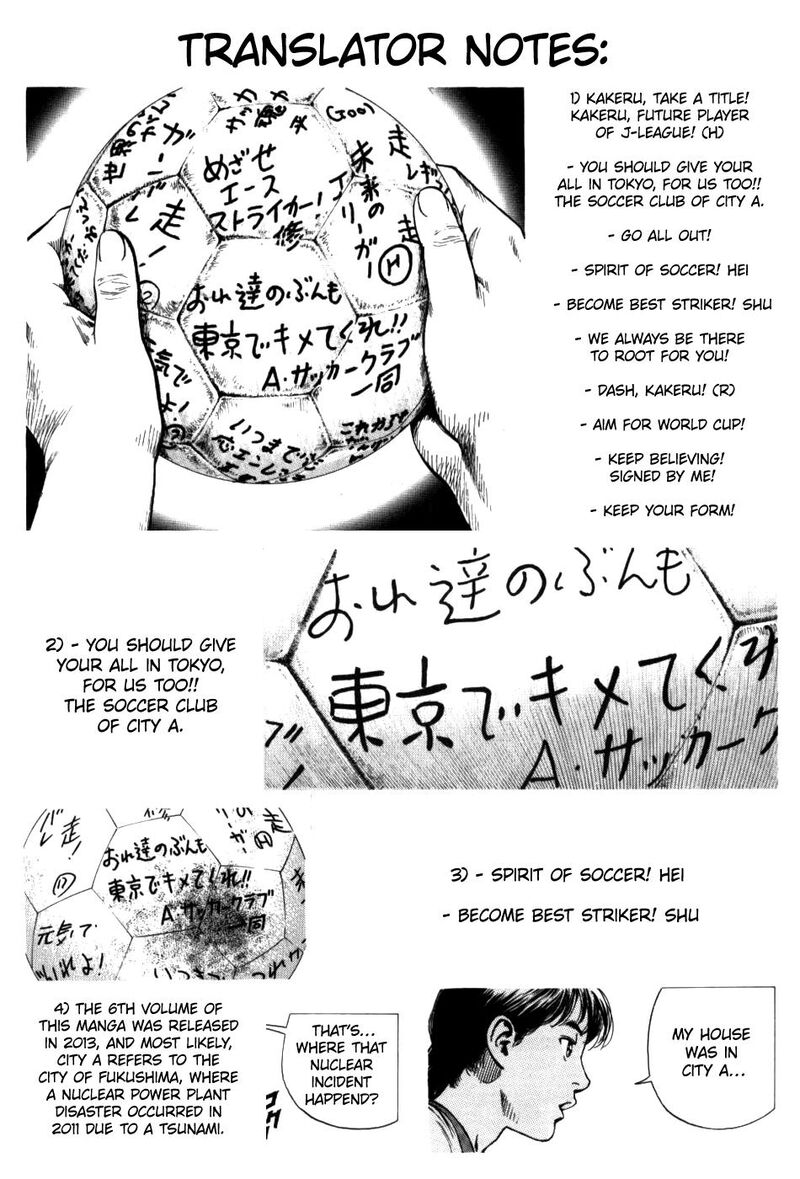 TRANSLATOR NOTES:
1) KAKERU, TAKE A TITLE!
KAKERU, FUTURE PLAYER
OF J-LEAGUE! (H)
- YOU SHOULD GIVE YOUR
ALL IN TOKYO, FOR US TOO!!
THE SOCCER CLUB OF CITY A.
- GO ALL OUT!
- SPIRIT OF SOCCER! HEI
- BECOME BEST STRIKER! SHU
- WE ALWAYS BE THERE
TO ROOT FOR YOU!
- DASH, KAKERU! (R)
- AIM FOR WORLD CUP!
- KEEP BELIEVING!
SIGNED BY ME!
- KEEP YOUR FORM!
めざせ
エース
ストライカー!
修
未来の
Jリーガー
H
走
ガンバレ
走!
おれ達のぶんも
東京でキメてくれ!!
A・サッカークラブ
一同
いつまでも
2) - YOU SHOULD GIVE
YOUR ALL IN TOKYO,
FOR US TOO!!
THE SOCCER CLUB
OF CITY A.
おれ達のぶんも
東京でキメてくれ
A・サッカーク
走!
リーガー
H
走
おれ達のぶんも
東京でキメてくれ!!
A・サッカークラブ
一同
元気で
れよ!
いつま
3) - SPIRIT OF SOCCER! HEI
- BECOME BEST STRIKER! SHU
4) THE 6TH VOLUME OF
THIS MANGA WAS RELEASED
IN 2013, AND MOST LIKELY,
CITY A REFERS TO THE
CITY OF FUKUSHIMA, WHERE
A NUCLEAR POWER PLANT
DISASTER OCCURRED IN
2011 DUE TO A TSUNAMI.
THAT'S...
WHERE THAT
NUCLEAR
INCIDENT
HAPPEND?
MY HOUSE
WAS IN
CITY A...